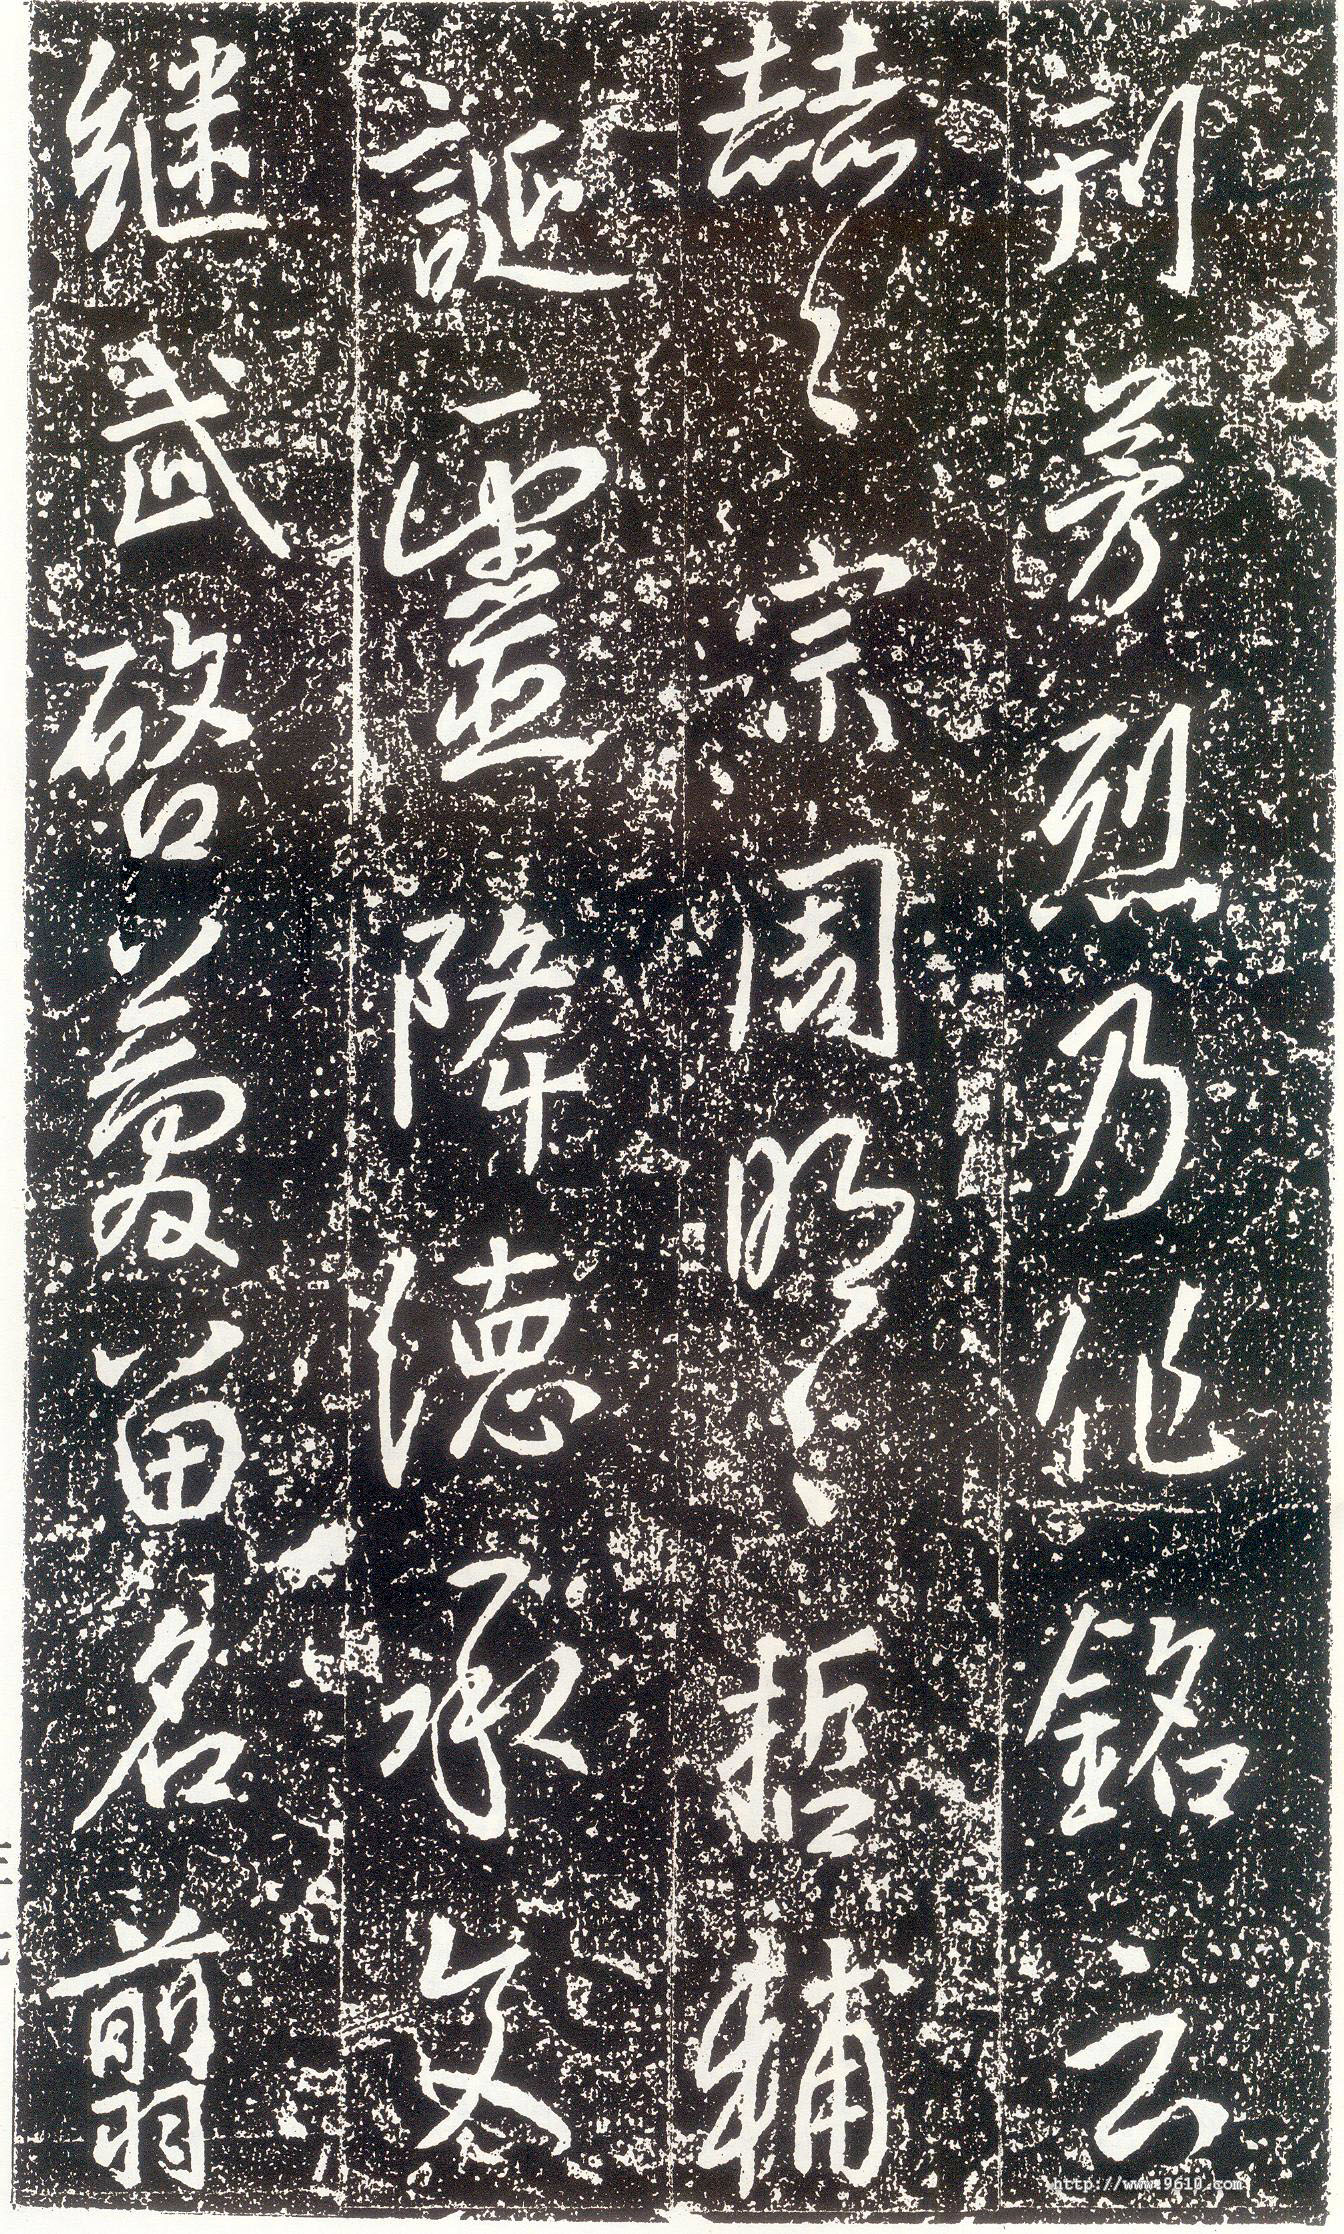 刊芳烈乃作銘云
赫〻宗周明〻哲輔
誕靈降德承文
継武啓慶留名翦
http://www.9610.com